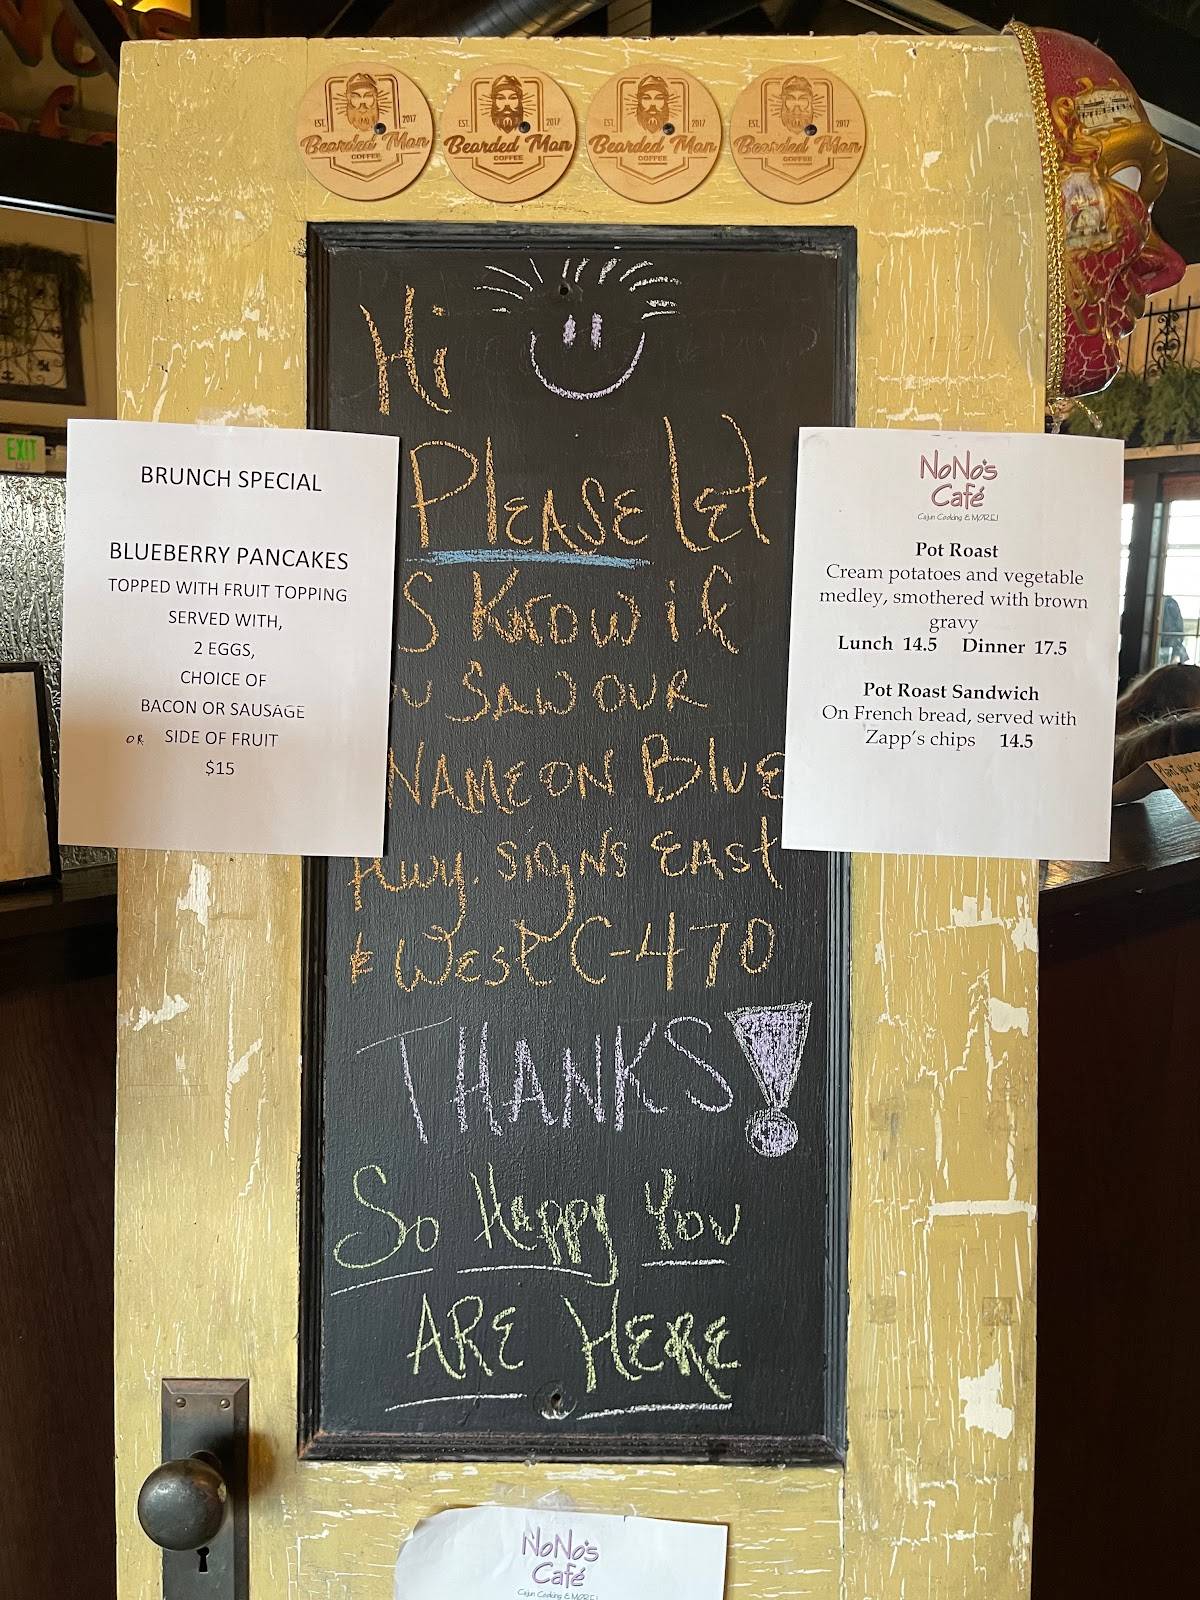 EST. 2017
Bearded Man
COFFEE
EST. 2017
Bearded Man
COFFEE
EST. 2017
Bearded Man
COFFEE
EST. 2017
Bearded Man
COFFEE
Hi
PLEASE LET
S KNOW if
U SAW OUR
NAME ON BLUE
Hwy. SIGNS EAST
& WEST C-470
THANKS!
So HAPPY You
ARE HERE
EXIT
BRUNCH SPECIAL
BLUEBERRY PANCAKES
TOPPED WITH FRUIT TOPPING
SERVED WITH,
2 EGGS,
CHOICE OF
BACON OR SAUSAGE
OR SIDE OF FRUIT
$15
NoNo's
Café
Cajun Cooking & MORE!
Pot Roast
Cream potatoes and vegetable
medley, smothered with brown
gravy
Lunch 14.5 Dinner 17.5
Pot Roast Sandwich
On French bread, served with
Zapp's chips 14.5
NoNo's
Café
Cajun Cooking & MORE!